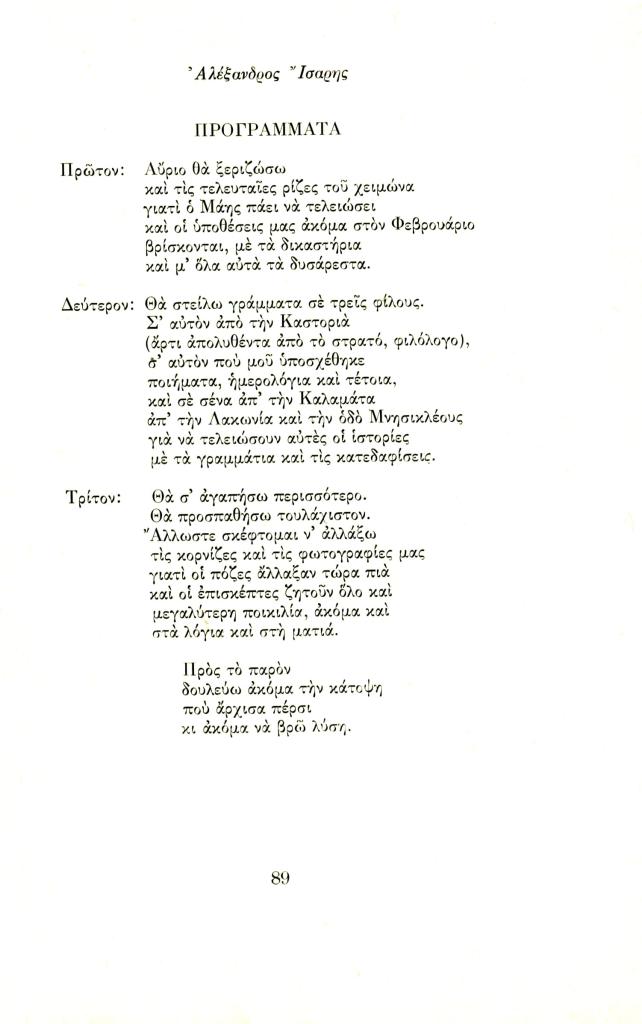 Ἀλέξανδρος Ἴσαρης
ΠΡΟΓΡΑΜΜΑΤΑ
Πρῶτον: Αὔριο θὰ ξεριζώσω
καὶ τὶς τελευταῖες ρίζες τοῦ χειμώνα
γιατὶ ὁ Μάης πάει νὰ τελειώσει
καὶ οἱ ὑποθέσεις μας ἀκόμα στὸν Φεβρουάριο
βρίσκονται, μὲ τὰ δικαστήρια
καὶ μ' ὅλα αὐτὰ τὰ δυσάρεστα.
Δεύτερον: Θὰ στείλω γράμματα σὲ τρεῖς φίλους.
Σ' αὐτὸν ἀπὸ τὴν Καστοριὰ
(ἄρτι ἀπολυθέντα ἀπὸ τὸ στρατό, φιλόλογο),
σ' αὐτὸν ποὺ μοῦ ὑποσχέθηκε
ποιήματα, ἡμερολόγια καὶ τέτοια,
καὶ σὲ σένα ἀπ' τὴν Καλαμάτα
ἀπ' τὴν Λακωνία καὶ τὴν ὁδὸ Μνησικλέους
γιὰ νὰ τελειώσουν αὐτὲς οἱ ἱστορίες
μὲ τὰ γραμμάτια καὶ τὶς κατεδαφίσεις.
Τρίτον: Θὰ σ' ἀγαπήσω περισσότερο.
Θὰ προσπαθήσω τουλάχιστον.
Ἄλλωστε σκέφτομαι ν' ἀλλάξω
τὶς κορνίζες καὶ τὶς φωτογραφίες μας
γιατὶ οἱ πόζες ἄλλαξαν τώρα πιὰ
καὶ οἱ ἐπισκέπτες ζητοῦν ὅλο καὶ
μεγαλύτερη ποικιλία, ἀκόμα καὶ
στὰ λόγια καὶ στὴ ματιά.
Πρὸς τὸ παρὸν
δουλεύω ἀκόμα τὴν κάτοψη
ποὺ ἄρχισα πέρσι
κι ἀκόμα νὰ βρῶ λύση.
89